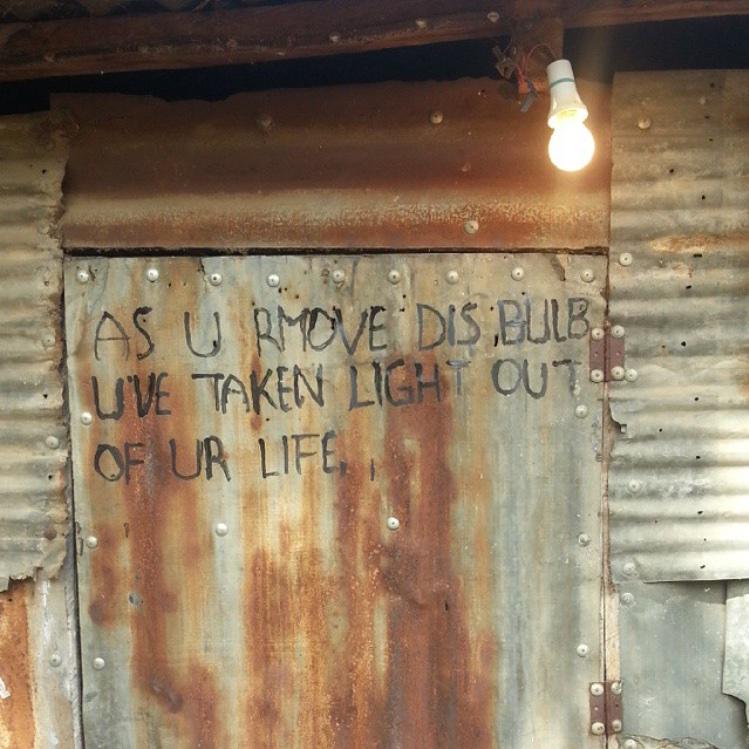 AS U RMOVE DIS BULB
U'VE TAKEN LIGHT OUT
OF UR LIFE..